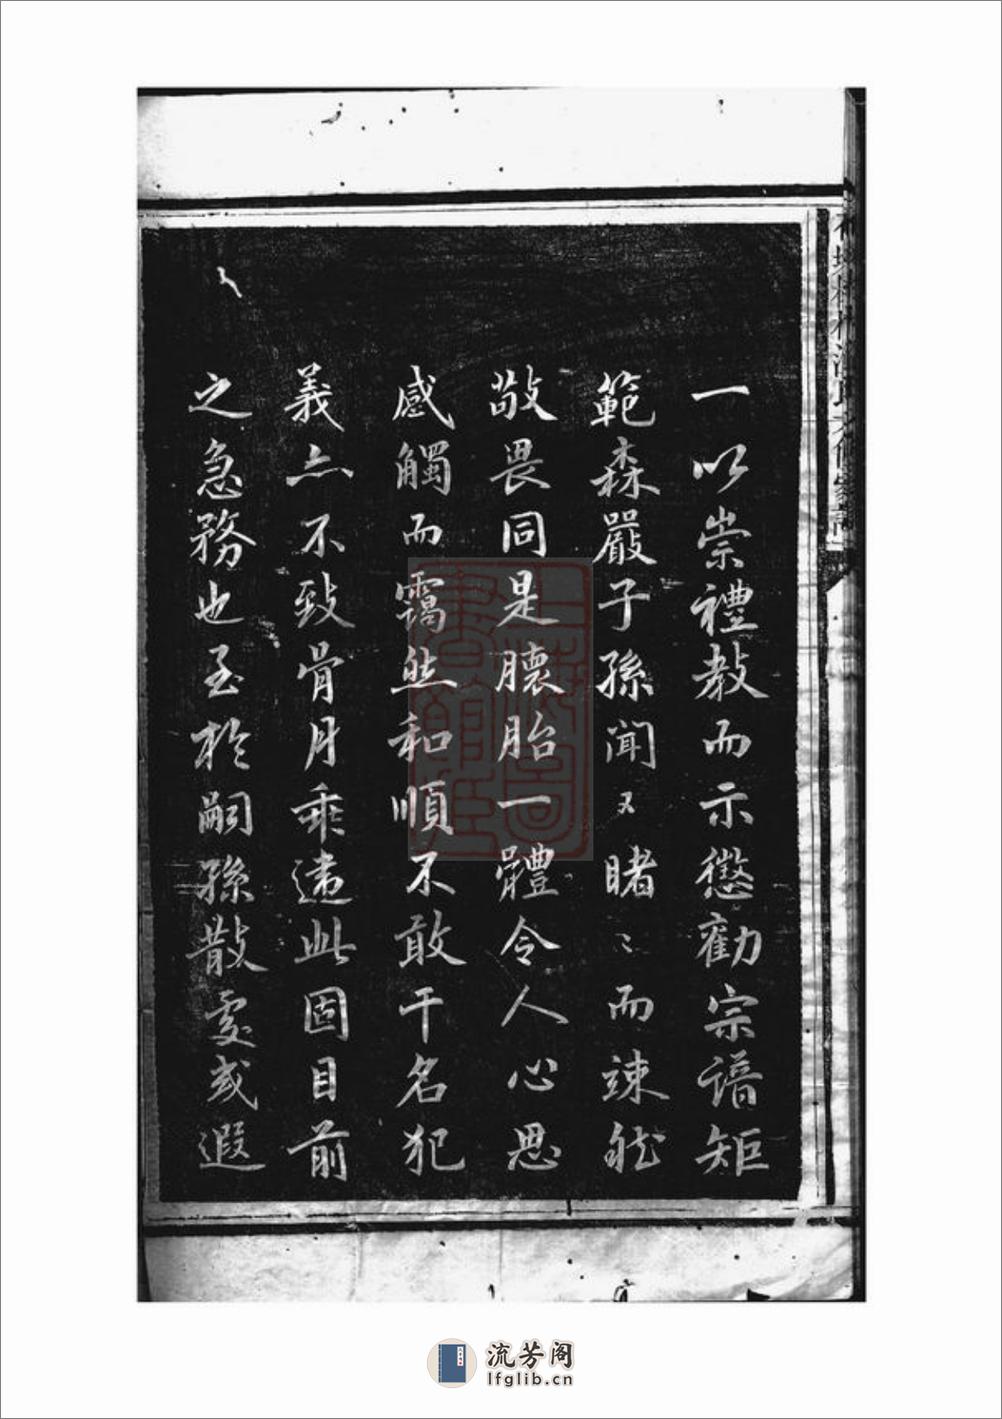 一以崇禮教而示懲勸宗譜矩
範森嚴子孫聞又睹〻而竦然
敬畏同是腜胎一體令人心思
感觸而靄然和順不敢干名犯
義亦不致骨月乖違此固目前
之急務也至於嗣孫散處或遐
流芳阁
lfglib.cn